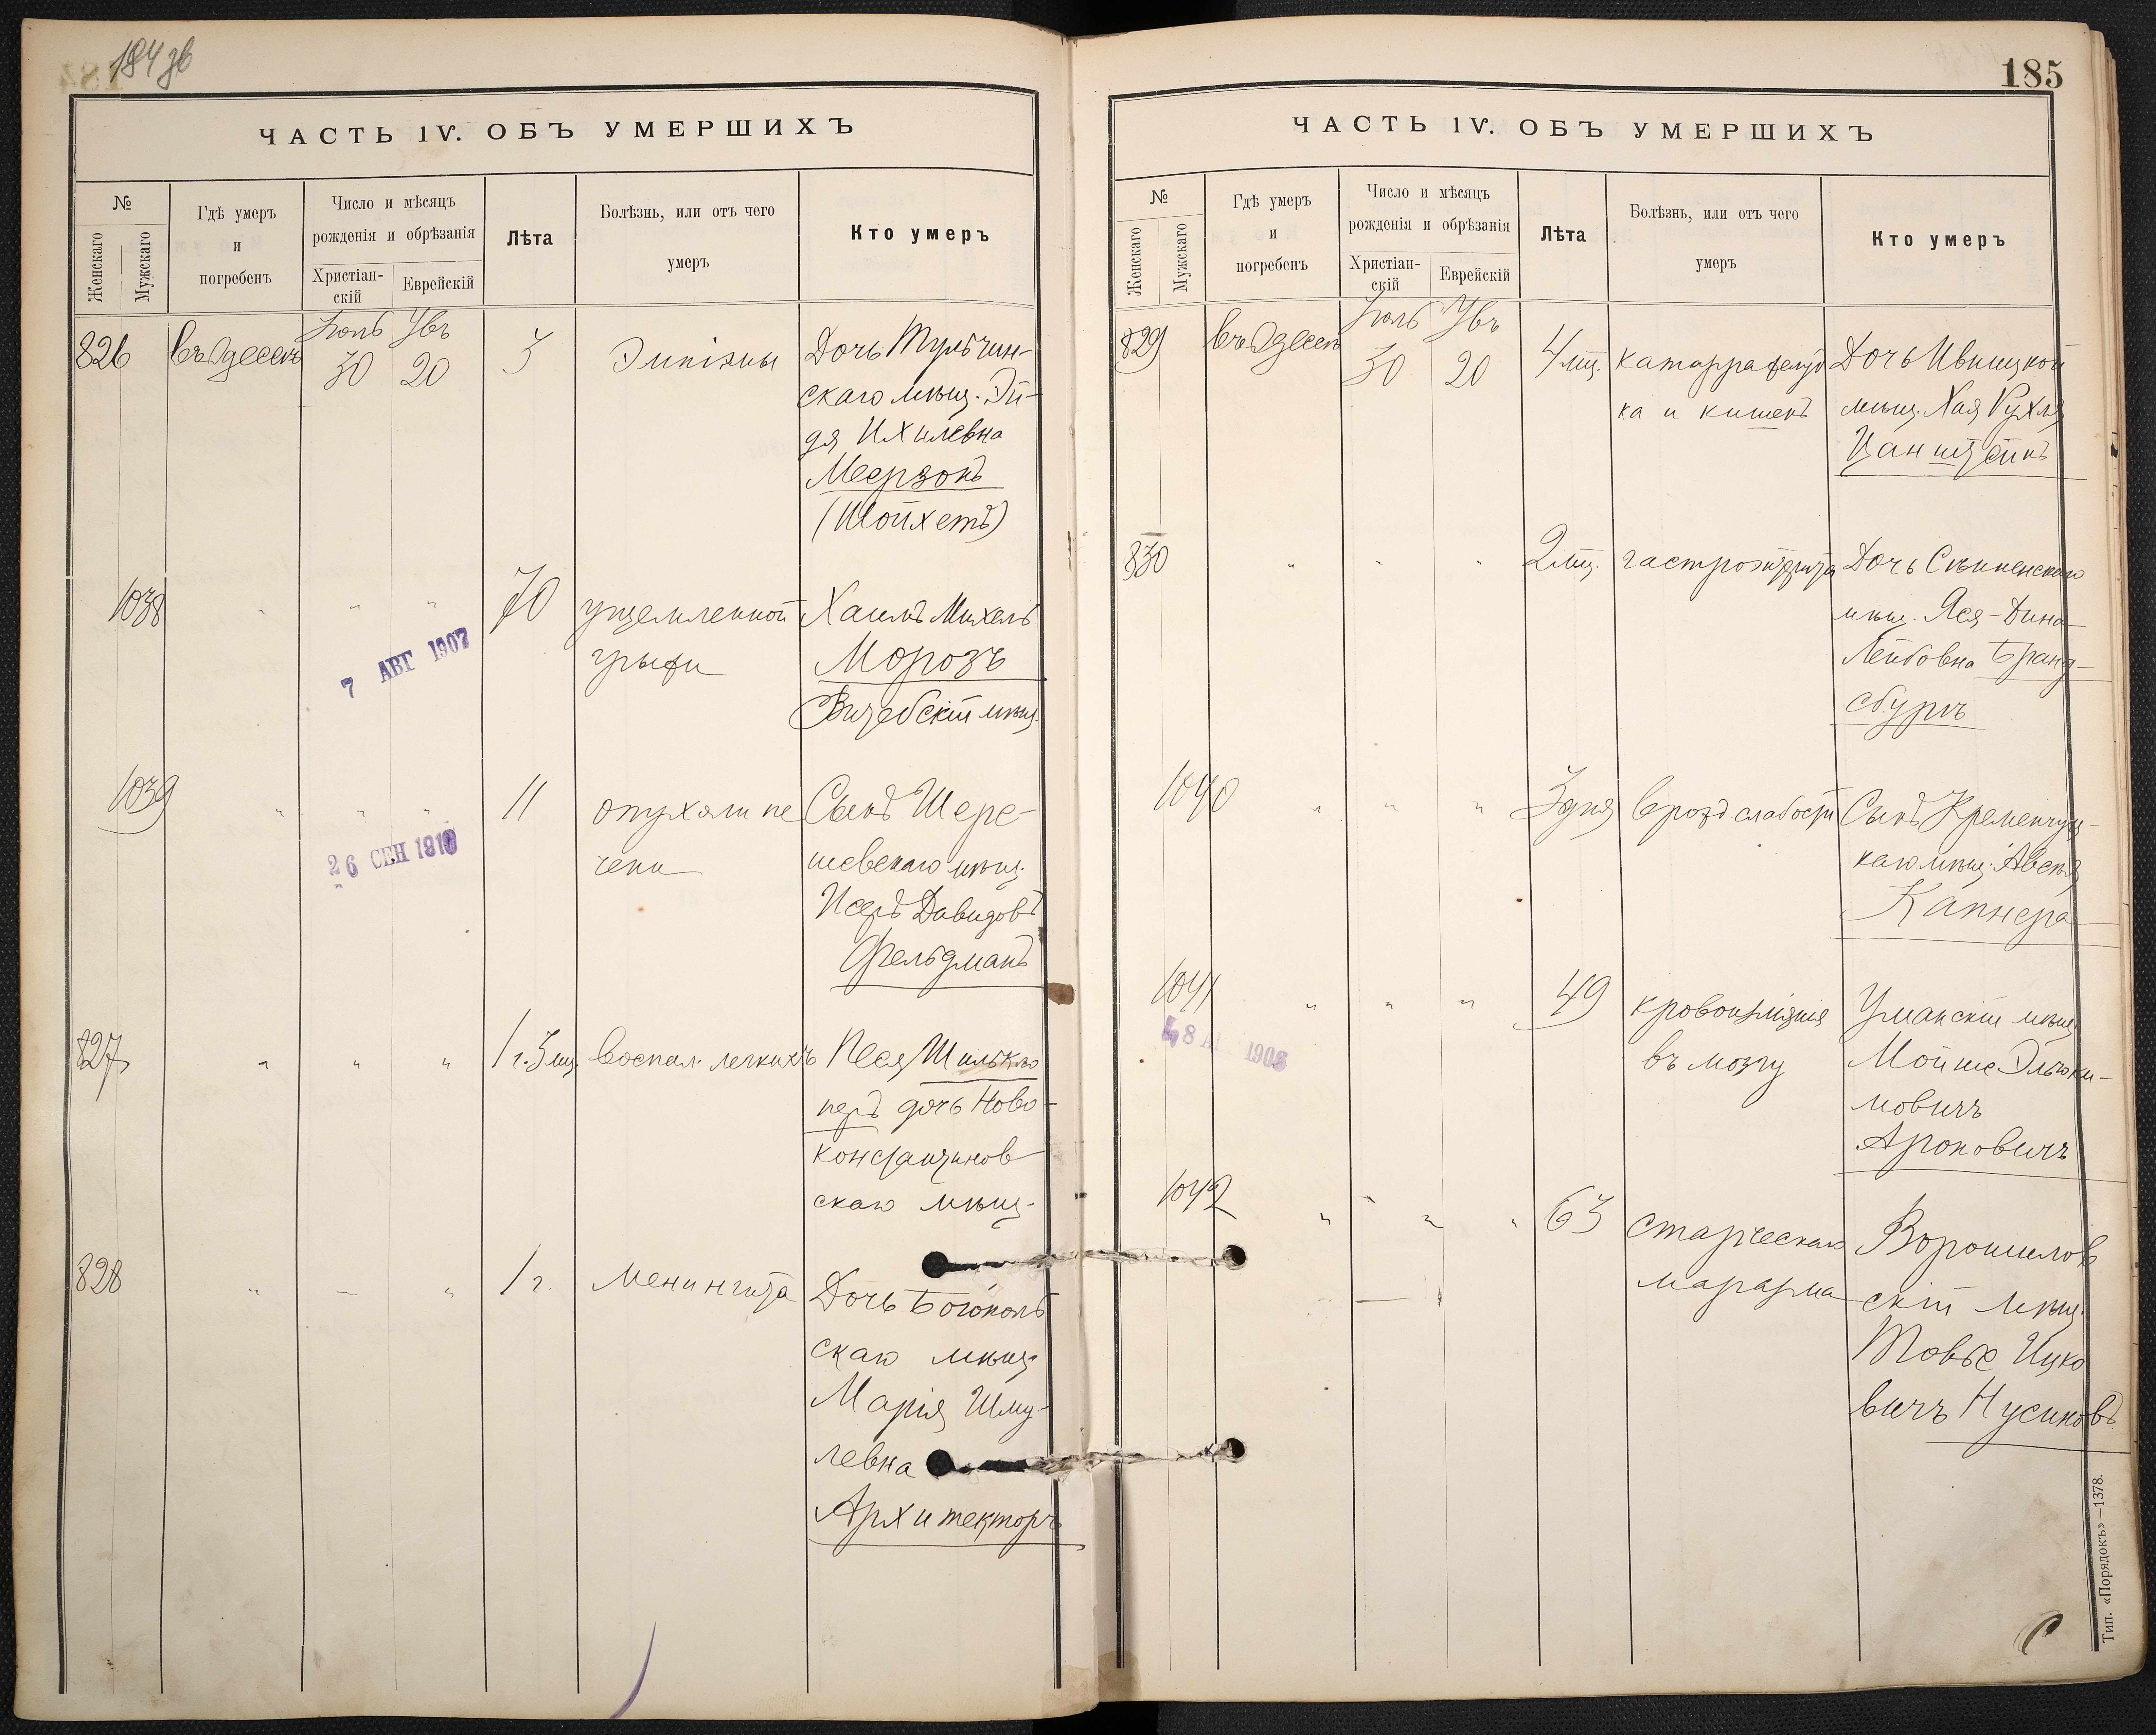 184 зв
ЧАСТЬ IV. ОБЪ УМЕРШИХЪ
№
Женскаго
Мужскаго
Гдѣ умеръ
и
погребенъ
Число и мѣсяцъ
рожденія и обрѣзанія
Христіан-
скій
Еврейскій
Лѣта
Болѣзнь, или отъ чего
умеръ
Кто умеръ
826
въ Одессѣ
Іюль Увъ
30 20
3
Эмпіэмы
Дочь Тульчин-
скаго мѣщ. Эй-
дя Ихилевна
Меерзонъ
(Шойхетъ)
1038
" " "
70
ущемленной
грыжи
Хаимъ Михель
Морозъ
Витебскій мѣщ.
7 АВГ 1907
1039
" " "
11
опухоли пе
чени
Сынъ Шере-
шевскаго мѣщ.
Исеръ Давидовъ
Фельдманъ
26 СЕН 1910
827
" " "
1 г. 3 мц.
воспал. легкихъ
Песя Шилькло
перъ дочь Ново-
константинов-
скаго мѣщ.
828
" — "
1 г.
Менингита
Дочь Богополь
скаго мѣщ.
Марія Шму-
левна
Архитекторъ
185
ЧАСТЬ IV. ОБЪ УМЕРШИХЪ
№
Женскаго
Мужскаго
Гдѣ умеръ
и
погребенъ
Число и мѣсяцъ
рожденія и обрѣзанія
Христіан-
скій
Еврейскій
Лѣта
Болѣзнь, или отъ чего
умеръ
Кто умеръ
829
въ Одессѣ
Іюль Увъ
30 20
4 мц.
катарра желуд
ка и кишекъ
Дочь Ивницкой
мѣщ. Хая Рухля
Цанштейнъ
830
" " "
2 мц.
гастроэнтерита
Дочь
мѣщ. Яся-Дина
Лейбовна Бранд-
сбургъ
1040
" " "
3 дня
врожд. слабости
Сынъ Кременчуг-
каго мѣщ. Авсѣя
Капнера
1041
" " "
49
кровоизліянія
въ мозгу
Уманскій мѣщ.
Мойше Элькі-
мовичъ
Ароновичъ
1908
1042
" " "
63
старческаго
маразма
Ворошилов
скій мѣщ.
Товье Ицко
вичъ Нусиновъ
Тип. «Порядокъ»—1378.